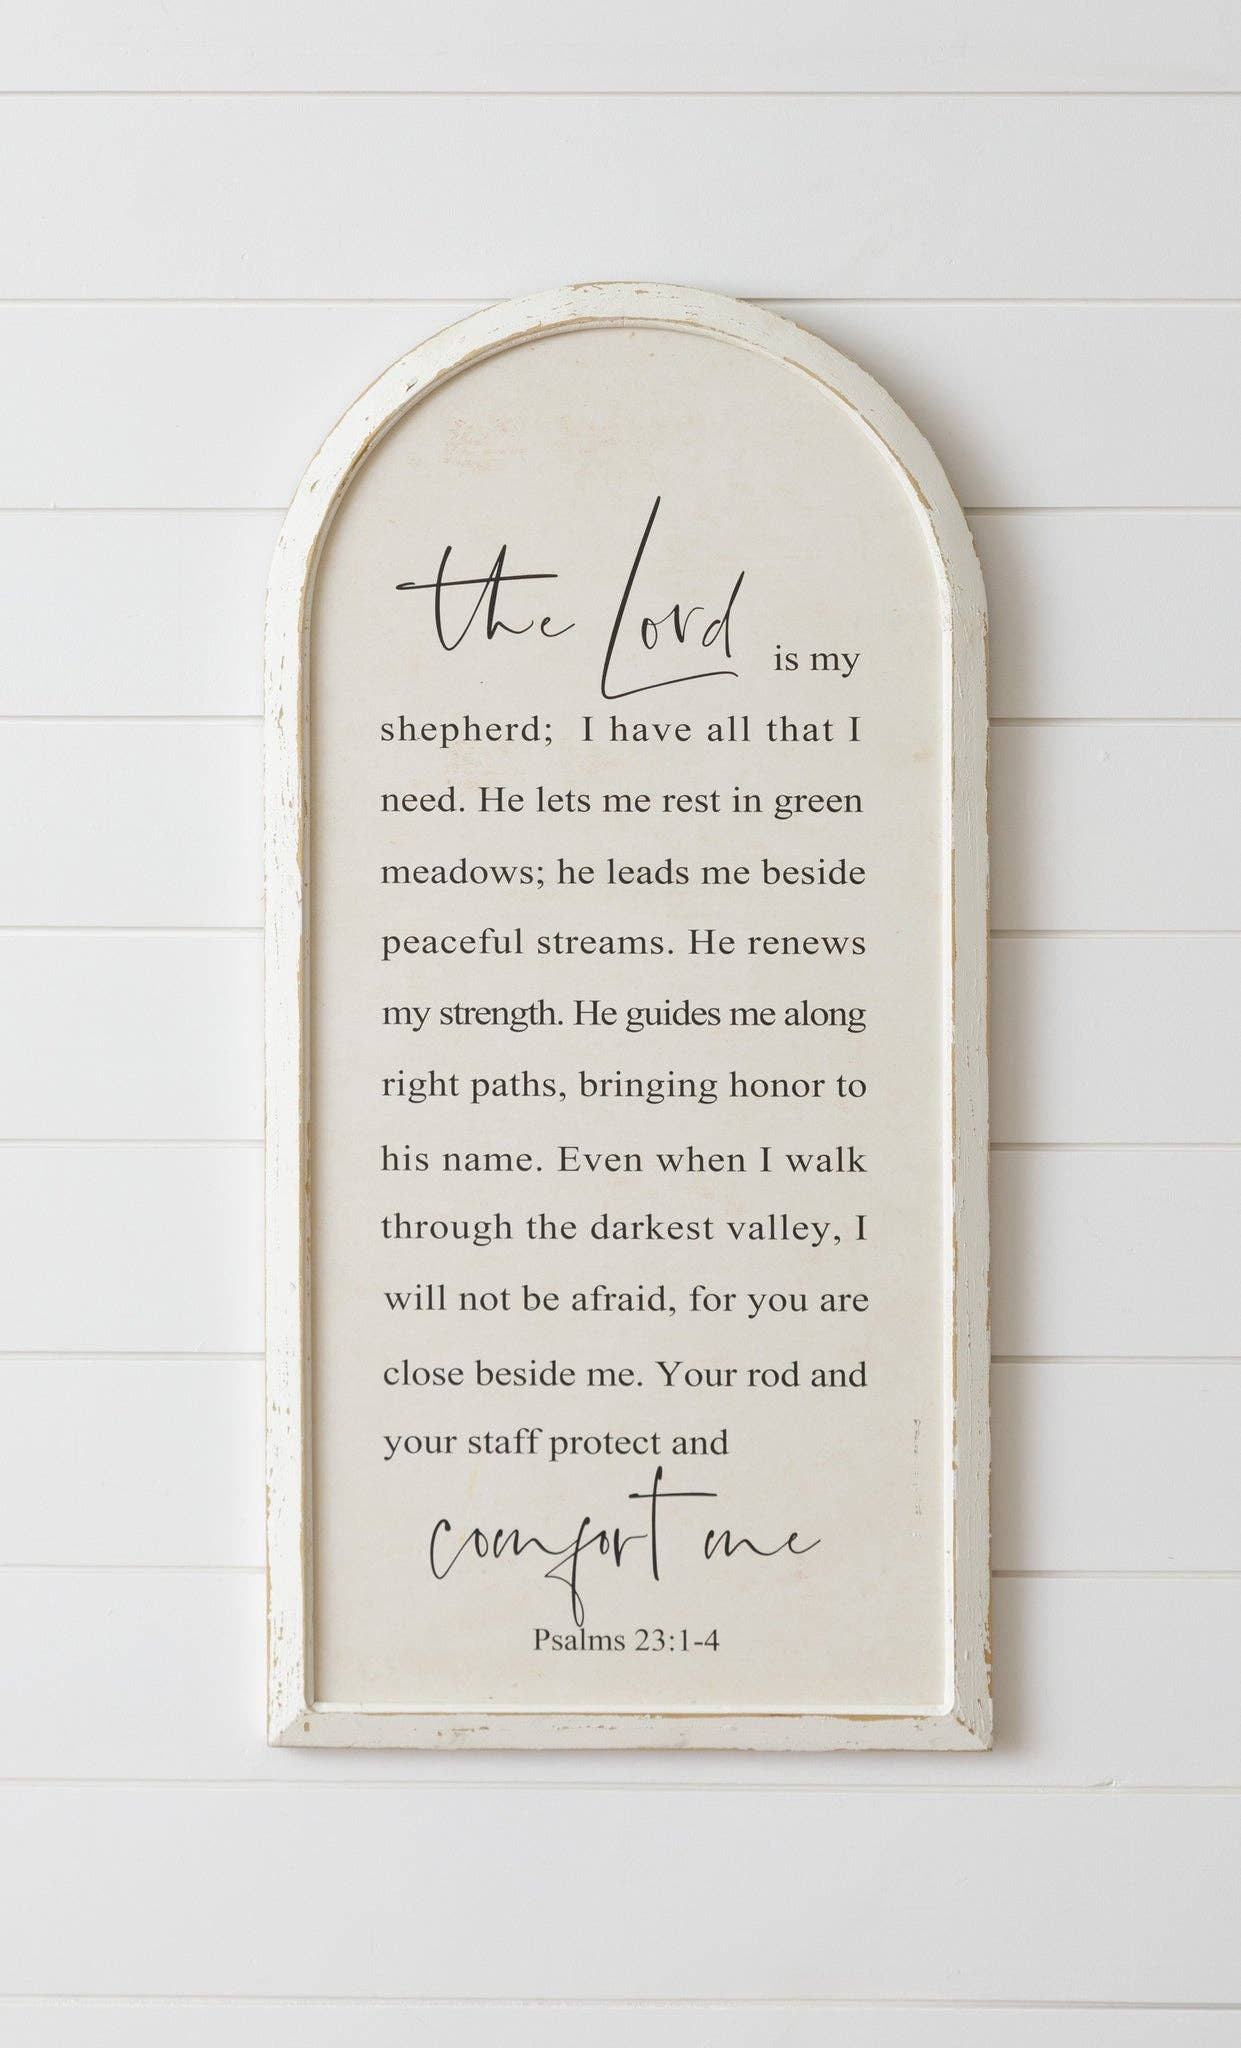 the Lord is my
shepherd; I have all that I
need. He lets me rest in green
meadows; he leads me beside
peaceful streams. He renews
my strength. He guides me along
right paths, bringing honor to
his name. Even when I walk
through the darkest valley, I
will not be afraid, for you are
close beside me. Your rod and
your staff protect and
comfort me
Psalms 23:1-4